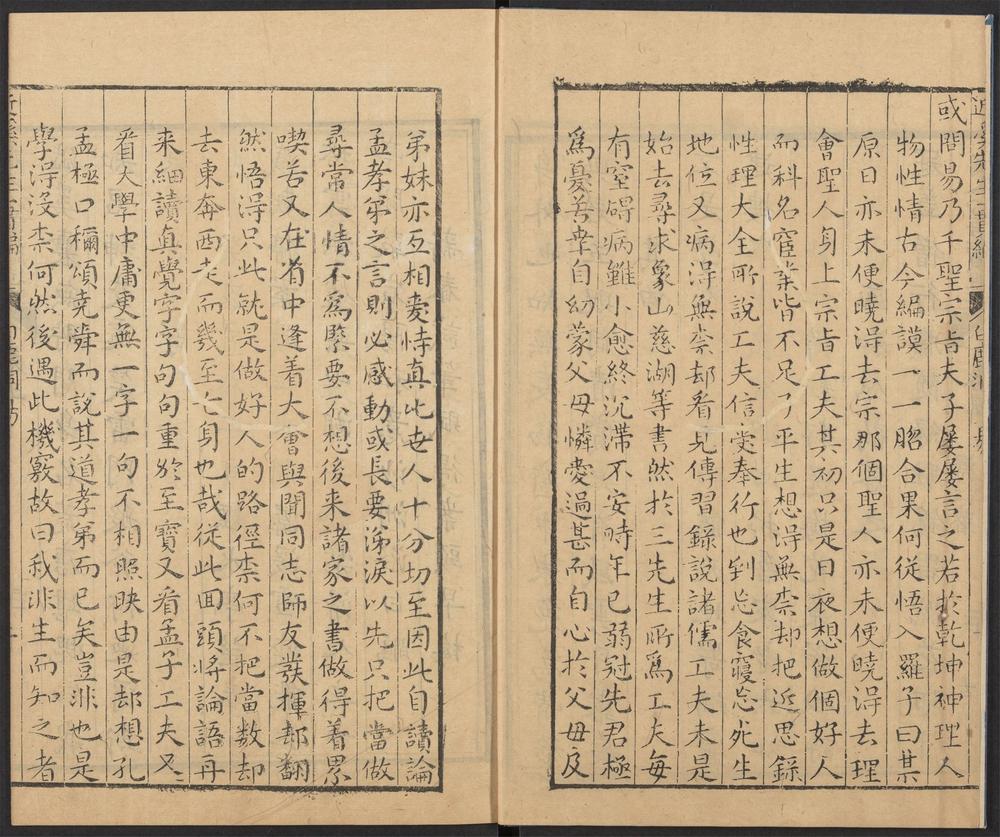 或問易乃千聖宗旨夫子屡屡言之若於乾坤神理人
物性情古今編謨一一脗合果何從悟入羅子曰某
原日亦未便曉淂去宗那個聖人亦未便曉淂去理
會聖人身上宗旨工夫其初只是日夜想做個好人
而科名宦業皆不足了平生想淂無柰却把近思録
性理大全所說工夫信受奉行也到忘食寢忘死生
地位又病淂無柰却看見傳習録說諸儒工夫未是
始去尋求象山慈湖等書然於三先生所爲工夫每
有窒碍病雖小愈終沉滞不安時年已弱冠先君極
爲憂苦幸自幼蒙父母憐愛過甚而自心於父母及
弟妹亦互相愛恃真比世人十分切至因此自讀論
孟孝弟之言則必感動或長要涕淚以先只把當做
尋常人情不爲緊要不想後来諸家之書做得着累
喫苦又在省中逢着大會與聞同志師友發揮却翻
然悟得只此就是做好人的路徑柰何不把當数却
去東奔西走而幾至亡身也哉從此回頭將論語再
来細讀真覺字字句句重於至寶又看孟子工夫又
看大學中庸更無一字一句不相照映由是却想孔
孟極口稱頌堯舜而說其道孝弟而已矣豈非也是
學淂沒柰何然後遇此機竅故曰我非生而知之者